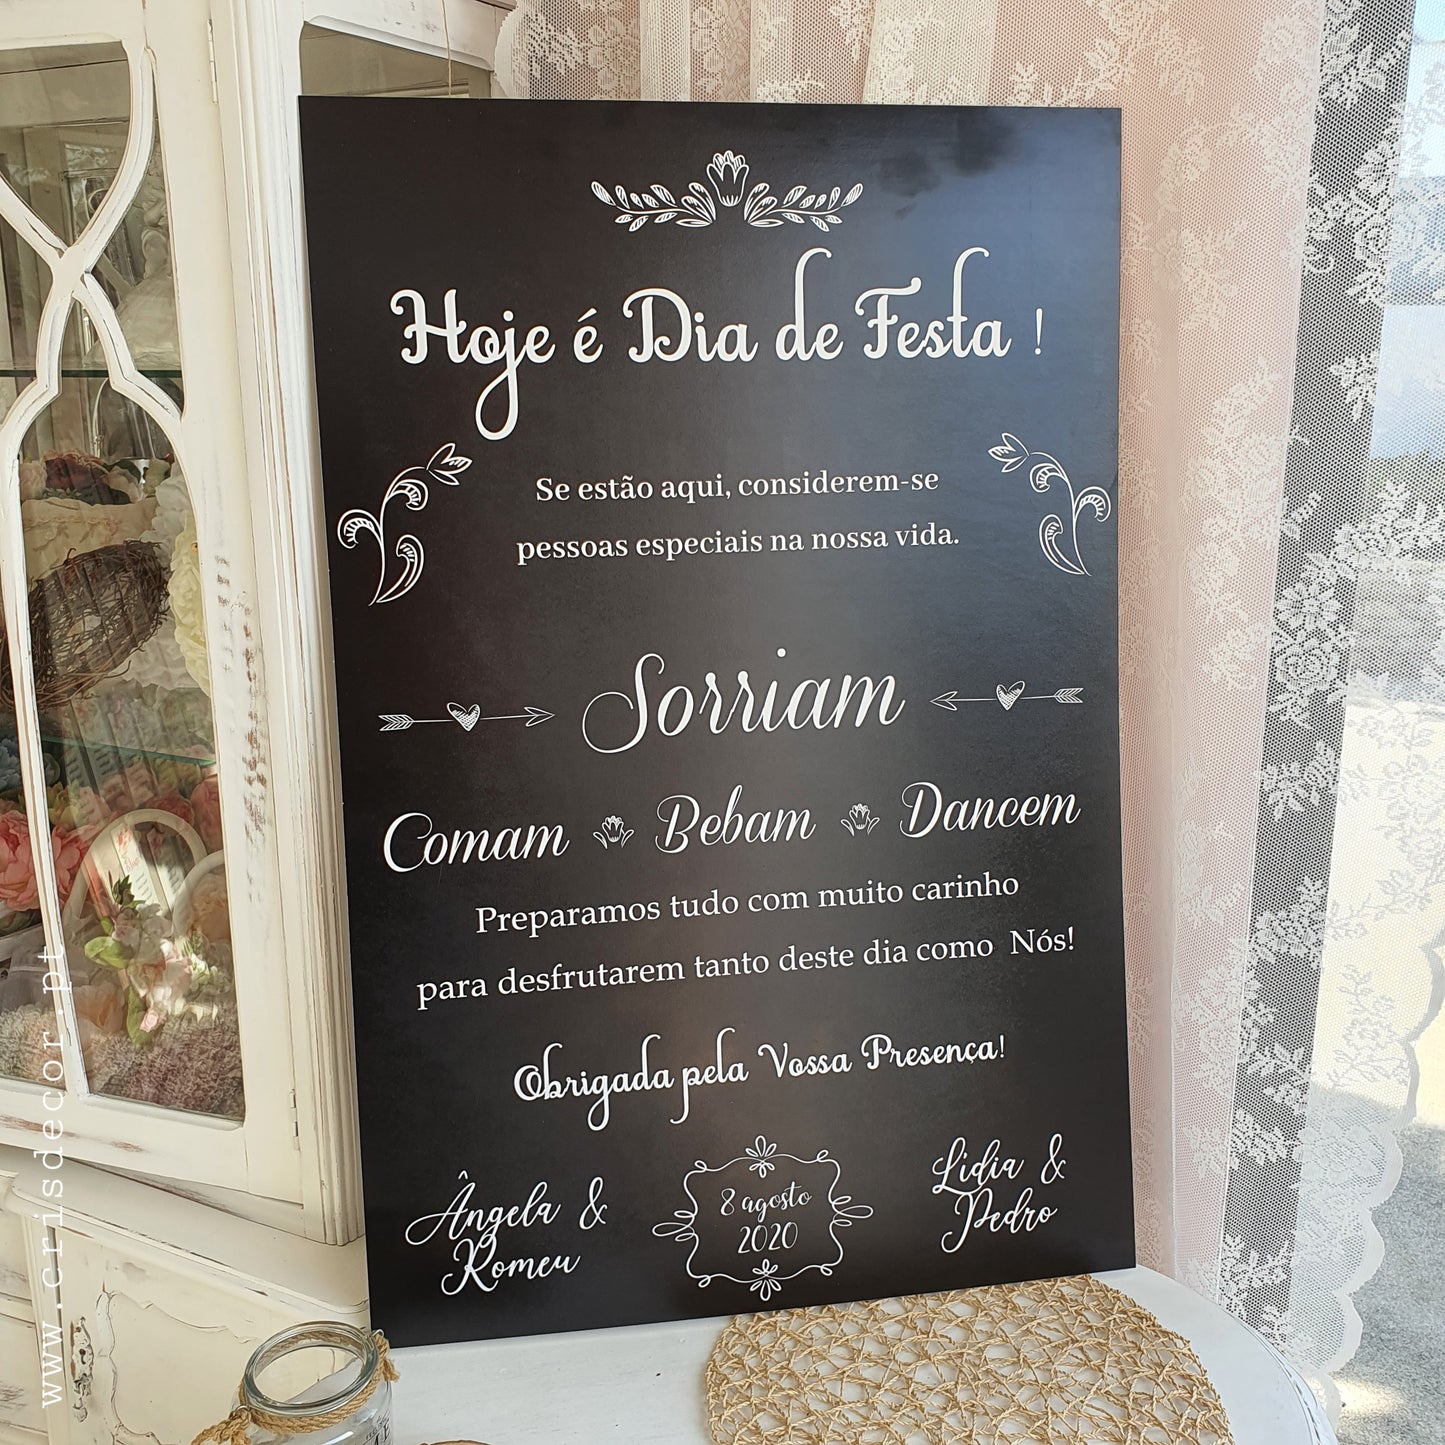 Hoje é Dia de Festa !
Se estão aqui, considerem-se
pessoas especiais na nossa vida.
Sorriam
Comam Bebam Dancem
Preparamos tudo com muito carinho
para desfrutarem tanto deste dia como Nós!
Obrigada pela Vossa Presença!
Ângela &
Romeu
8 agosto
2020
Lidia &
Pedro
www.crisdecor.pt